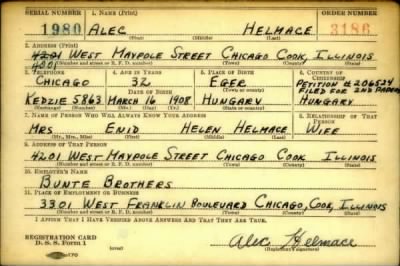 SERIAL NUMBER 1. NAME (Print) ORDER NUMBER
1980 ALEC HELMACE 3186
(First) (Middle) (Last)
2. ADDRESS (Print)
4201 WEST MAYPOLE STREET CHICAGO COOK, ILLINOIS
4201
(Number and street or R. F. D. number) (Town) (County) (State)
3. TELEPHONE 4. AGE IN YEARS 5. PLACE OF BIRTH 6. COUNTRY OF CITIZENSHIP
CHICAGO 32 EGER PETITION # 206524
DATE OF BIRTH (Town or county) FILED FOR 2ND PAPERS
KEDZIE 5863 MARCH 16 1908 HUNGARY HUNGARY
(Exchange) (Number) (Mo.) (Day) (Yr.) (State or country)
7. NAME OF PERSON WHO WILL ALWAYS KNOW YOUR ADDRESS 8. RELATIONSHIP OF THAT PERSON
MRS ENID HELEN HELMACE WIFE
(Mr., Mrs., Miss) (First) (Middle) (Last)
9. ADDRESS OF THAT PERSON
4201 WEST MAYPOLE STREET CHICAGO COOK ILLINOIS
(Number and street or R. F. D. number) (Town) (County) (State)
10. EMPLOYER'S NAME
BUNTE BROTHERS
11. PLACE OF EMPLOYMENT OR BUSINESS
3301 WEST FRANKLIN BOULEVARD CHICAGO, COOK, ILLINOIS
(Number and street or R. F. D. number) (Town) (County) (State)
I AFFIRM THAT I HAVE VERIFIED ABOVE ANSWERS AND THAT THEY ARE TRUE.
REGISTRATION CARD
D. S. S. Form 1 Alec Helmace
(Registrant's signature)